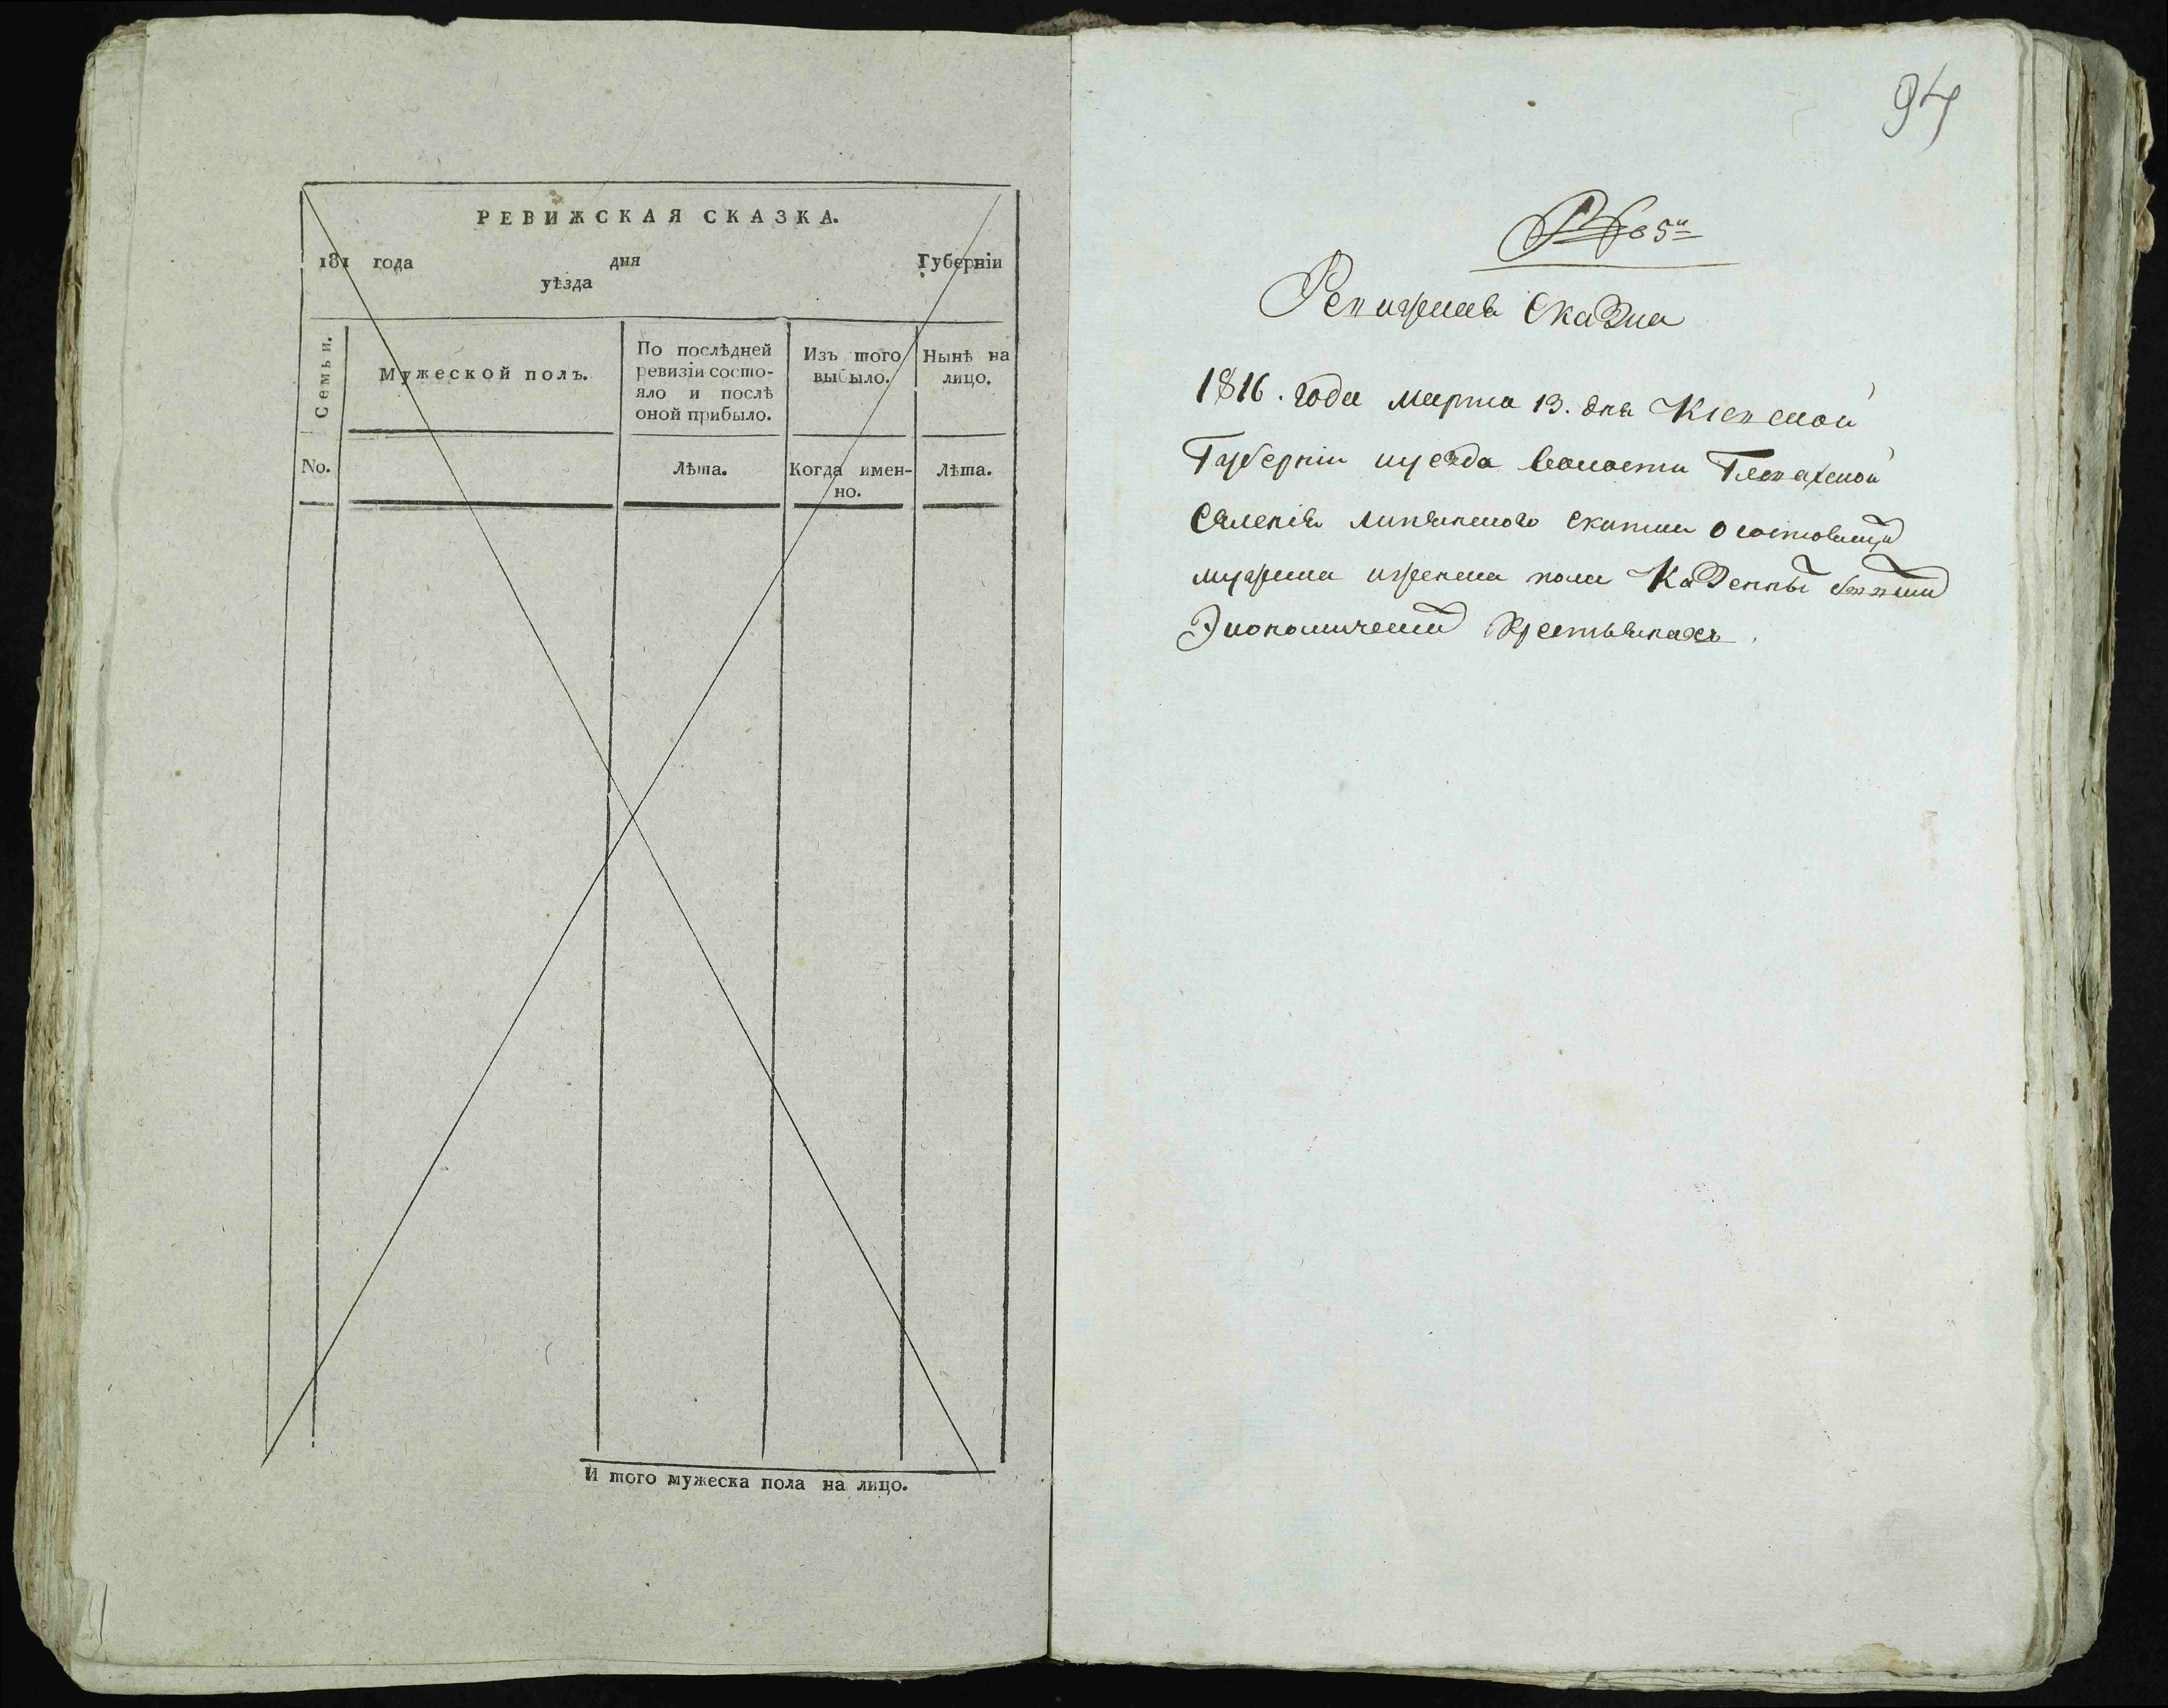 РЕВИЖСКАЯ СКАЗКА.
181 года дня Губерніи
уѣзда
Семьи.
Мужеской полъ.
По послѣдней
ревизіи состо-
яло и послѣ
оной прибыло.
Изъ того
выбыло.
Нынѣ на
лицо.
No.
Лѣта.
Когда имен-
но.
Лѣта.
И того мужеска пола на лицо.
94
5й
Ревижская Сказка
1816. года марта 13. дня Кіевской
Губерніи иуезда волости Глевахской
Селенія скитка о состоящих
мужеска иженска пола Казенны бывших
Экономических Крестьянахъ.